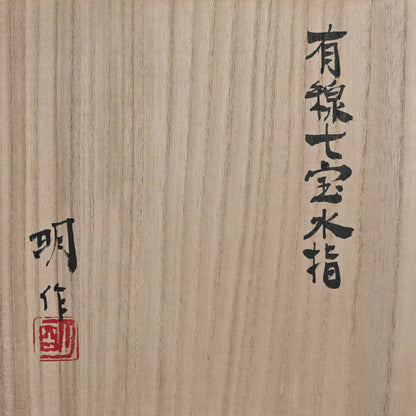 有線七宝水指
明作